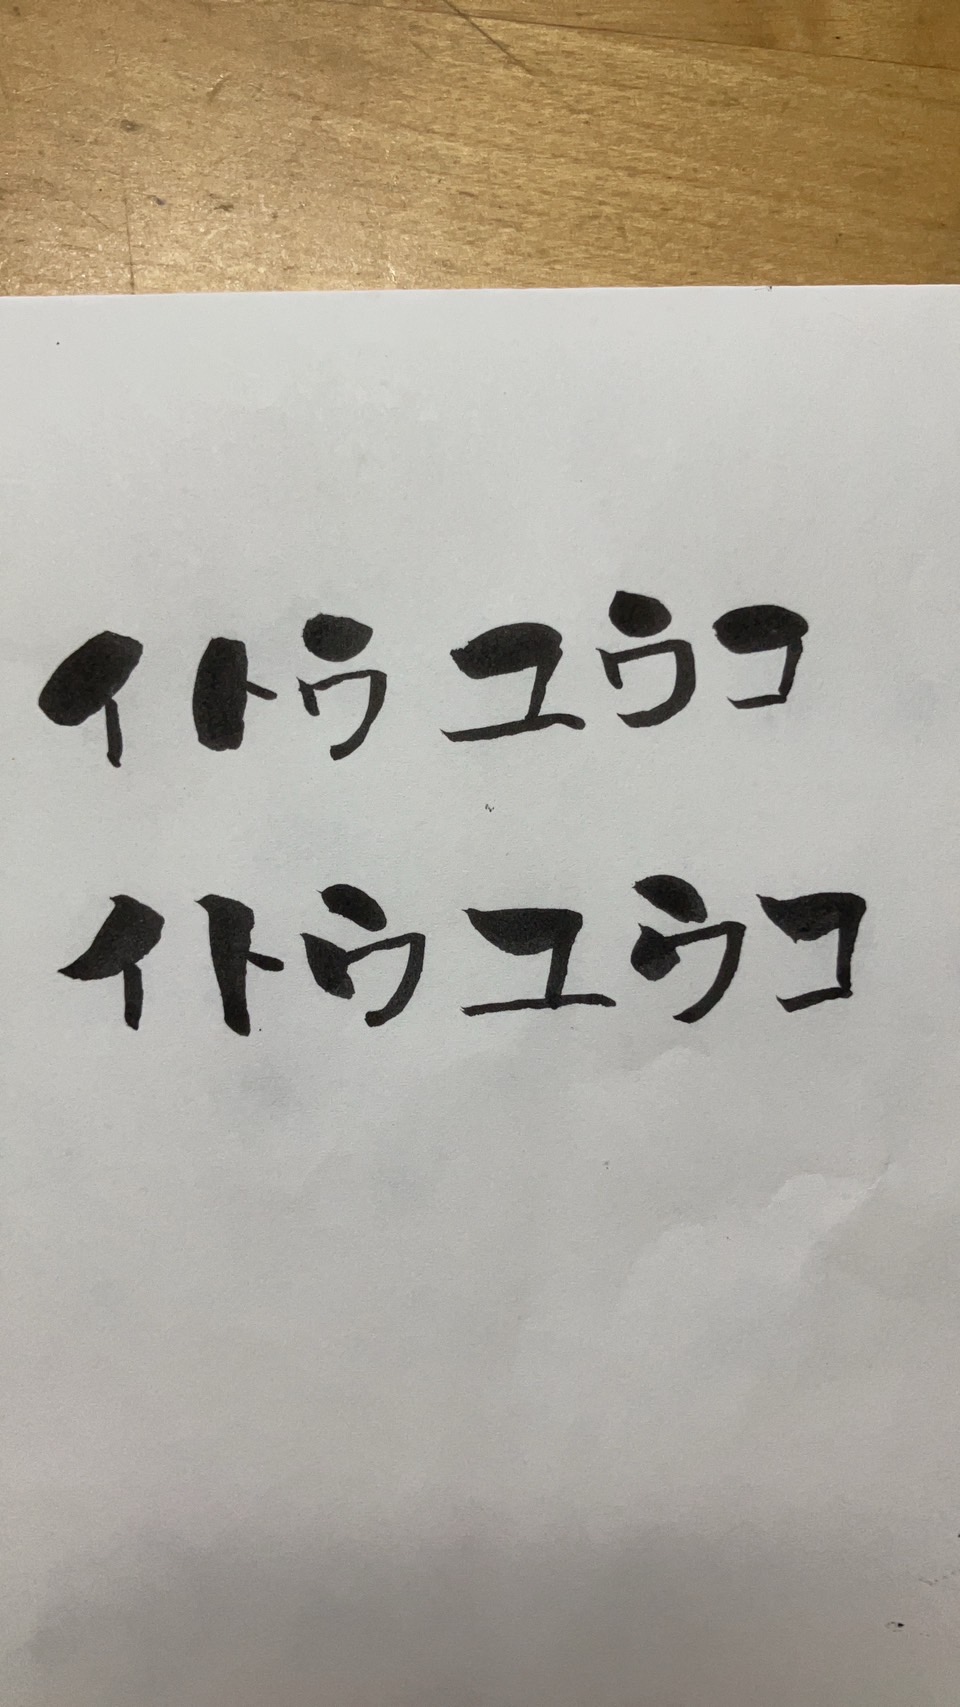 イトウユウコ
イトウユウコ